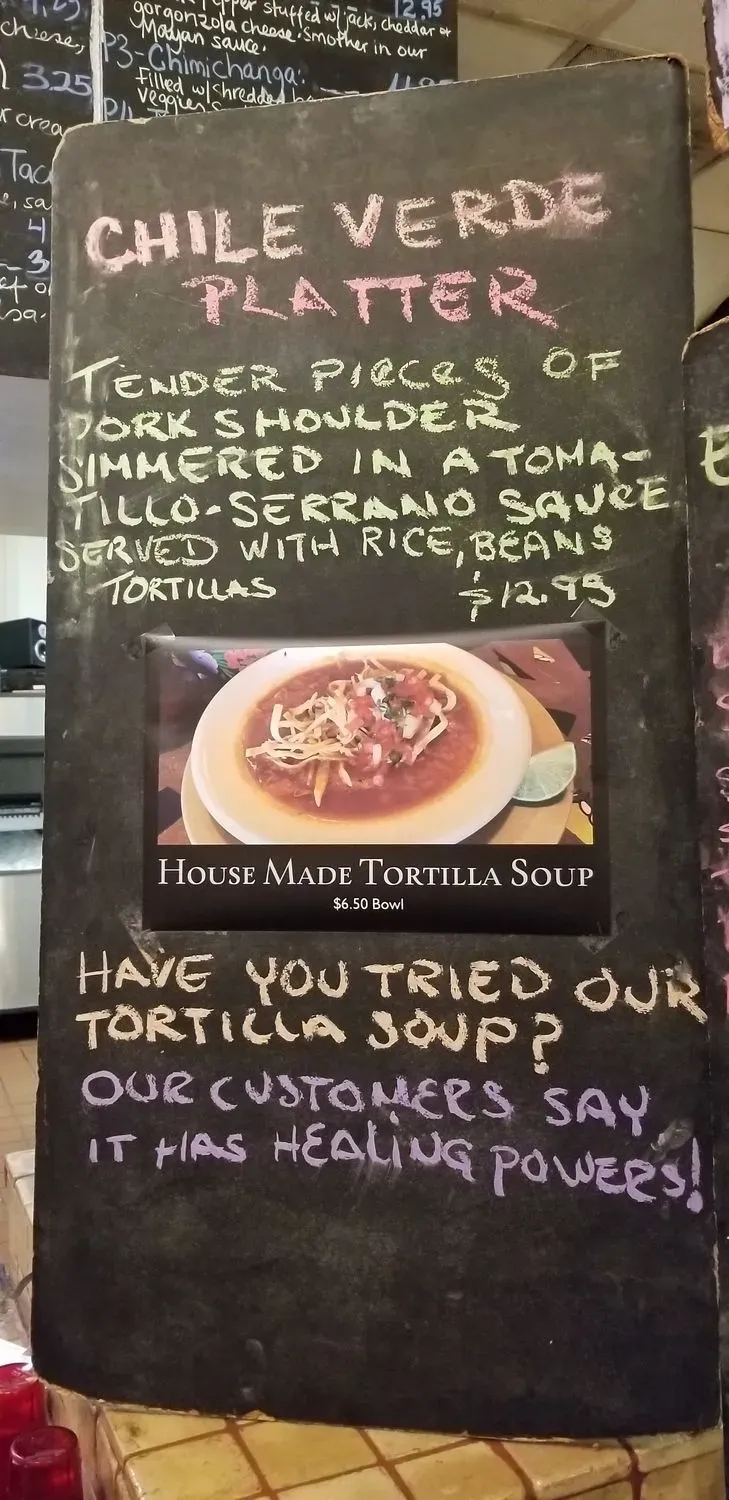 12.95
pper stuffed w/jack, cheddar or
gorgonzola cheese. Smother in our
Mayan sauce.
P3-Chimichanga:
Filled w/shredded
veggies
cheese,
3.25
r crea
Taco
CHILE VERDE
PLATTER
TENDER PIECES OF
PORK SHOULDER
SIMMERED IN A TOMA-
TILLO-SERRANO SAUCE
SERVED WITH RICE, BEANS
TORTILLAS $12.95
HOUSE MADE TORTILLA SOUP
$6.50 Bowl
HAVE YOU TRIED OUR
TORTILLA SOUP?
OUR CUSTOMERS SAY
IT HAS HEALING POWERS!